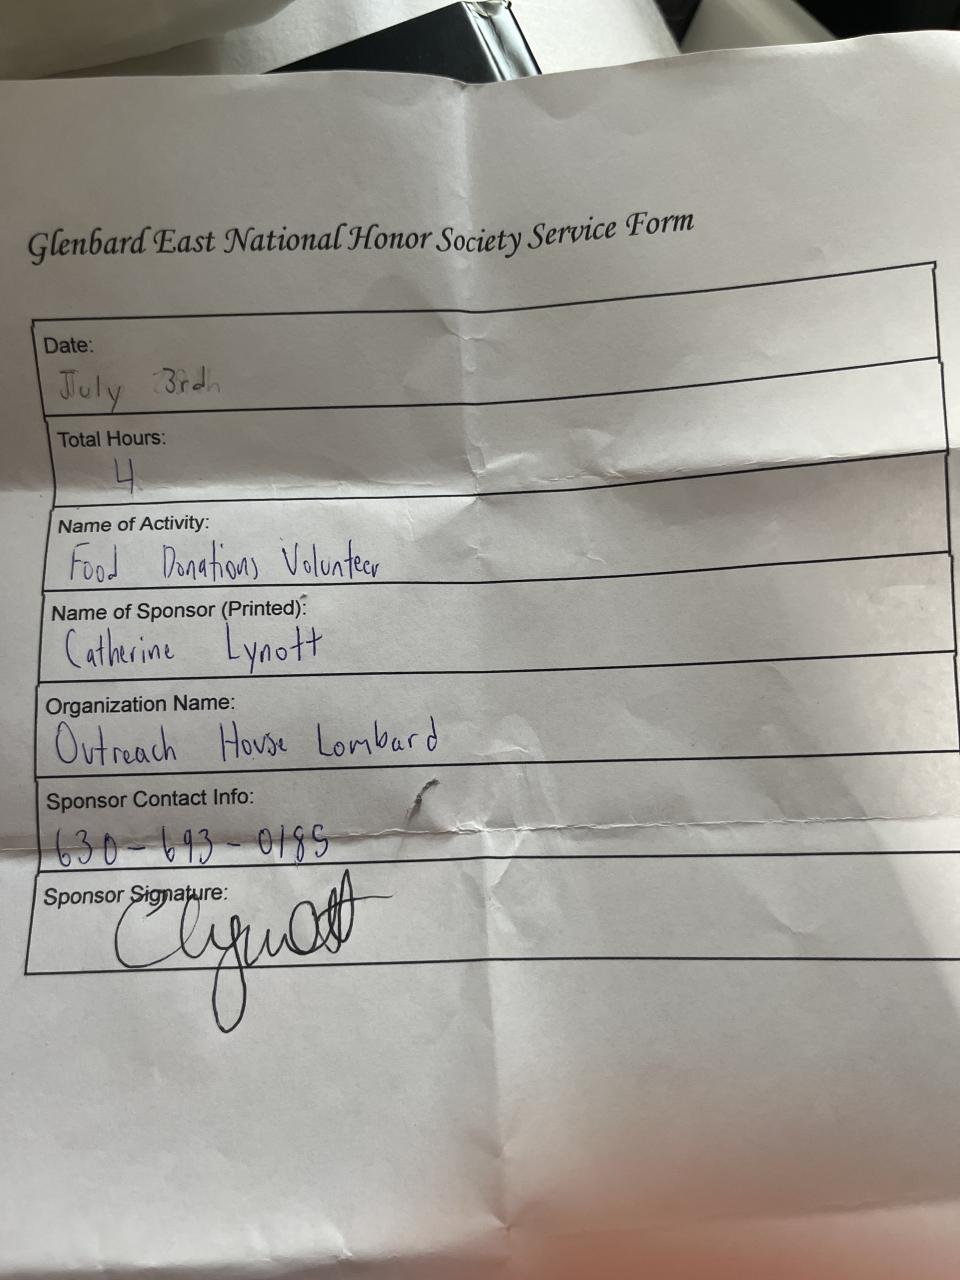 Glenbard East National Honor Society Service Form
Date:
July 3rd
Total Hours:
4
Name of Activity:
Food Donations Volunteer
Name of Sponsor (Printed):
Catherine Lynott
Organization Name:
Outreach House Lombard
Sponsor Contact Info:
630-693-0185
Sponsor Signature:
Clynott